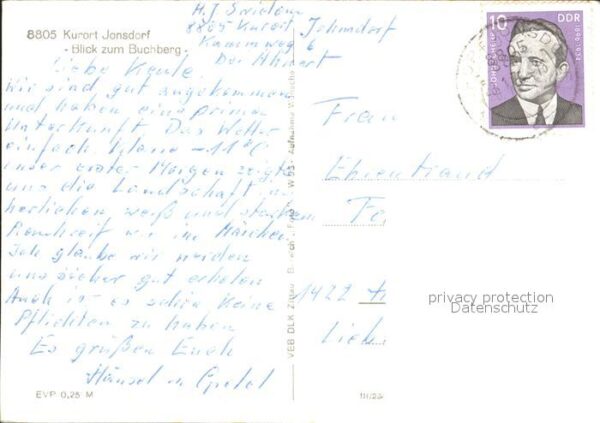 8805 Kurort Jonsdorf
- Blick zum Buchberg -
H.J.
8805 Kurort Johnsdorf
Kammweg 6
Bei Ahnert
Liebe Keule!
Wir sind gut angekommen
und haben eine prima
Unterkunft. Das Wetter
einfach klasse -11°C
unser erster Morgen zeigte
uns die Landschaft in
herrlichen weiß und starken
Rauhreif wie im Märchen
Ich glaube wir werden
uns sicher gut erholen
Auch ist es schön keine
Pflichten zu haben
Es grüßen Euch
Hänsel u Gretel
EVP 0,25 M
VEB DLK Zittau
III/23
10 DDR
Frau
1422
privacy protection
Datenschutz